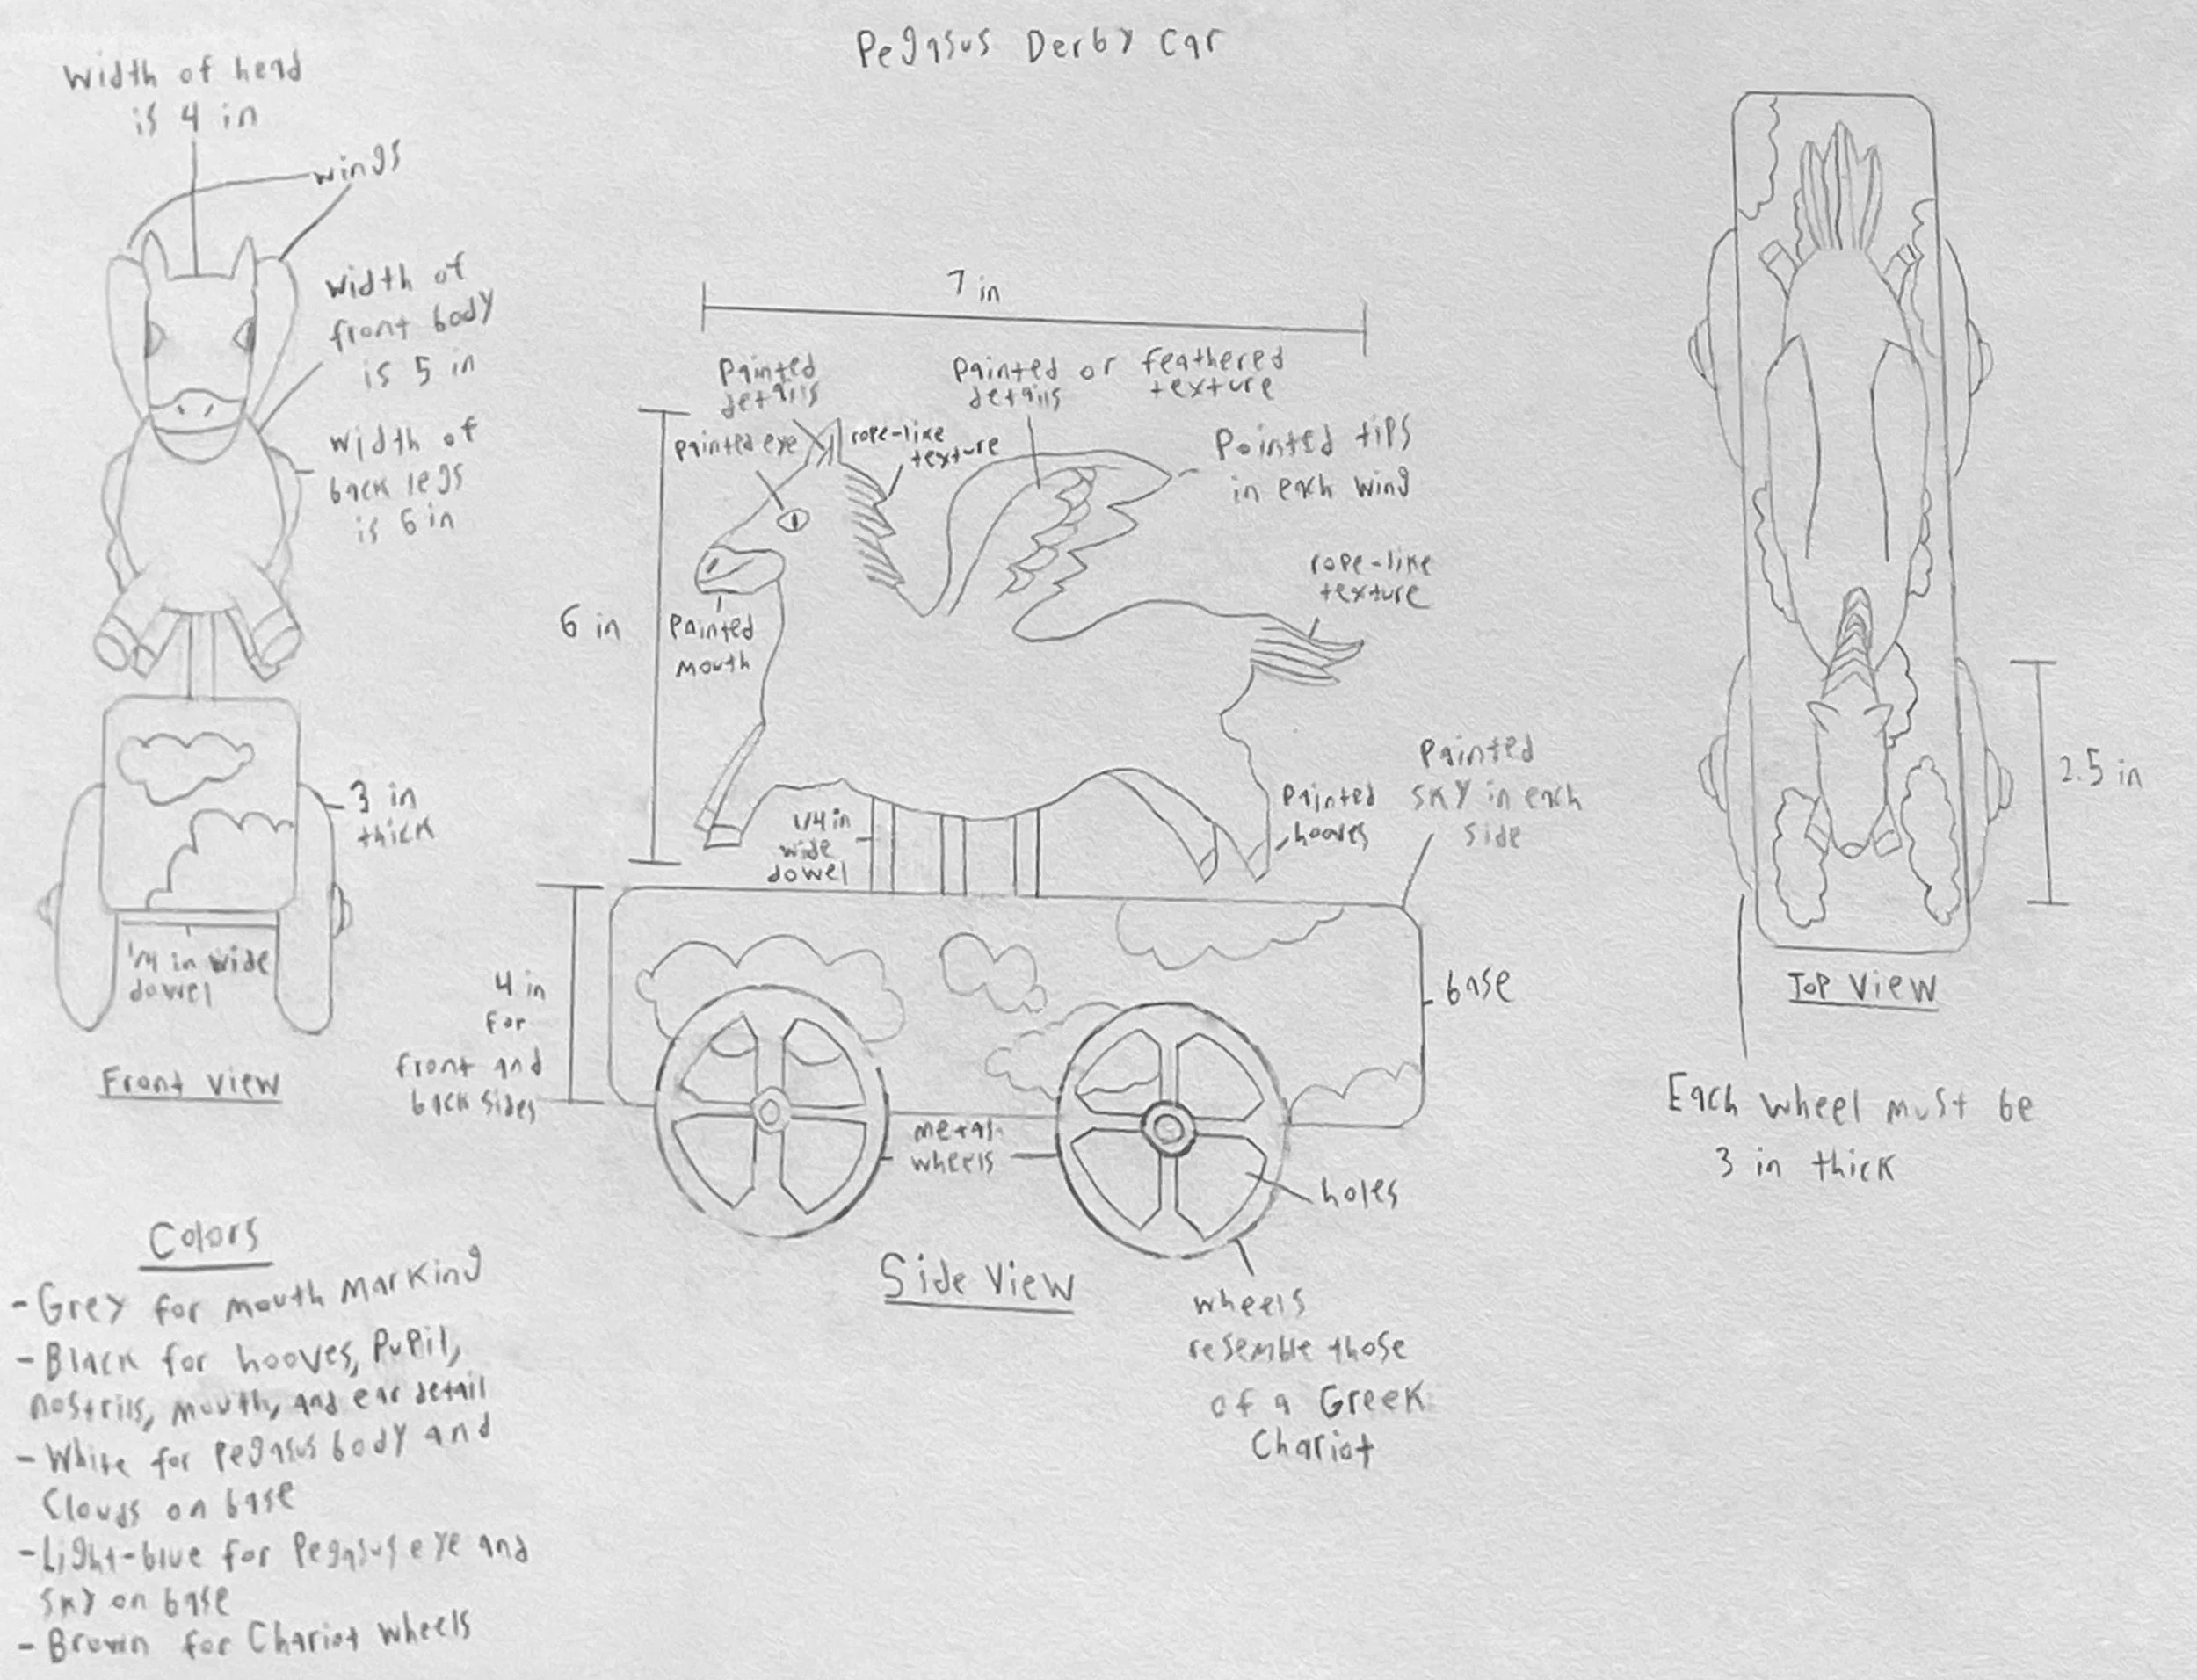 Pegasus Derby Car
Width of head
is 4 in
wings
width of
front body
is 5 in
width of
back legs
is 6 in
3 in
thick
1/4 in wide
dowel
Front View
7 in
Painted
details
Painted or feathered
details texture
painted eye
rope-like
texture
Pointed tips
in each wing
rope-like
texture
6 in
Painted
mouth
1/4 in
wide
dowel
Painted
hooves
Painted
sky in each
side
4 in
for
front and
back sides
base
metal
wheels
holes
Side View
wheels
resemble those
of a Greek
Chariot
2.5 in
Top View
Each wheel must be
3 in thick
Colors
- Grey for mouth marking
- Black for hooves, pupil,
nostrils, mouth, and ear detail
- White for pegasus body and
clouds on base
- Light-blue for Pegasus eye and
sky on base
- Brown for Chariot wheels